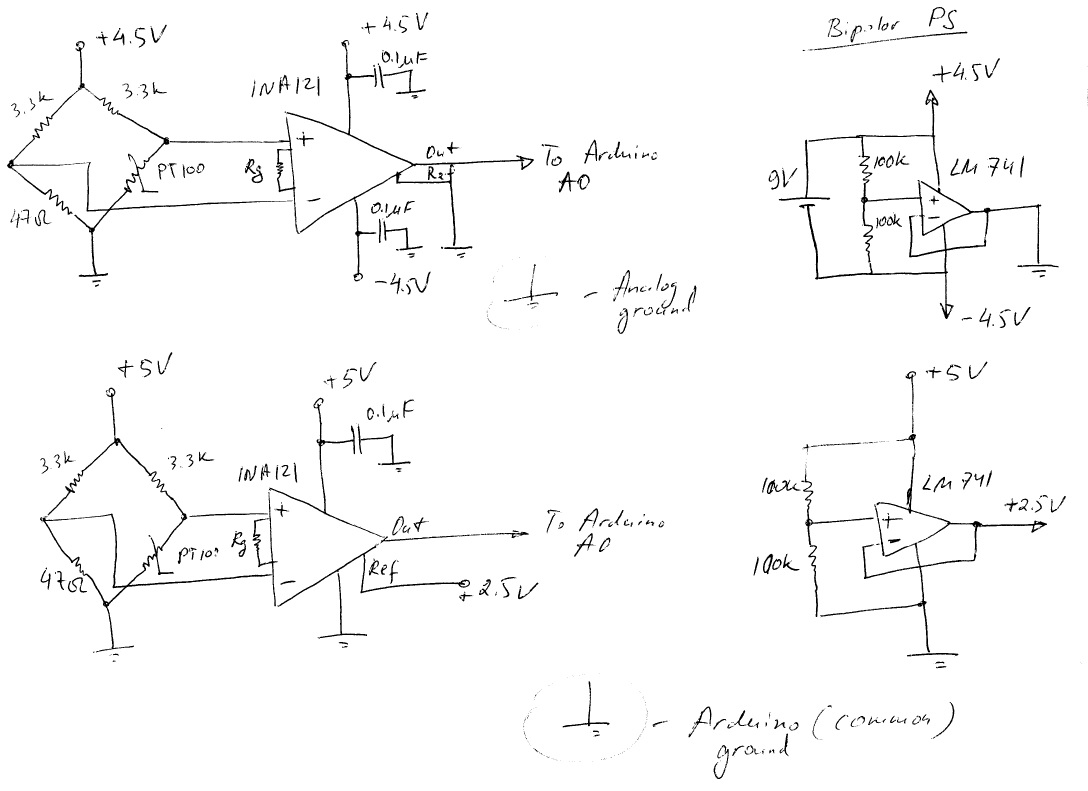 Bipolar PS
+4.5V
3.3k
3.3k
INA121
+4.5V
0.1µF
+
-
Rg
PT100
47Ω
Out
Ref
To Arduino
A0
0.1µF
-4.5V
- Analog
ground
+4.5V
9V
100k
100k
LM741
+
-
-4.5V
+5V
3.3k
3.3k
INA121
+5V
0.1µF
+
-
Rg
PT100
47Ω
Out
Ref
To Arduino
A0
+2.5V
+5V
100k
100k
LM741
+
-
+2.5V
- Arduino (common)
ground